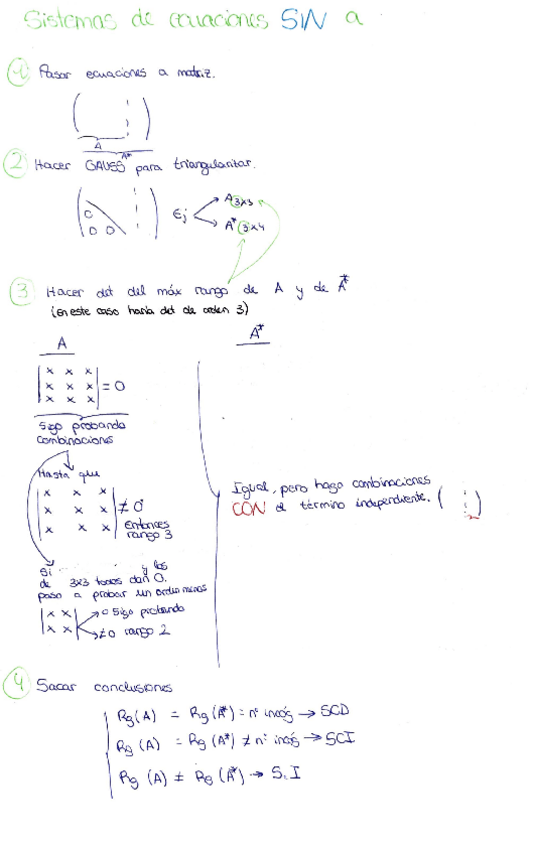 Sistemas de ecuaciones SIN a
1 Pasar ecuaciones a matriz.
A
A*
2 Hacer GAUSS para triangularizar.
0
0 0
Ej
A 3x3
A* 3x4
3 Hacer det del máx rango de A y de A*
(en este caso haría det de orden 3)
A
A*
x x x
x x x = 0
x x x
Sigo probando
combinaciones
Hasta que
x x x
x x x ≠ 0
x x x
Entonces
rango 3
Igual, pero hago combinaciones
CON el término independiente. ( )
Si y los
de 3x3 todos dan 0.
paso a probar un orden menos
x x
x x
0 Sigo probando
≠0 rango 2
4 Sacar conclusiones
Rg (A) = Rg (A*) = nº incóg → SCD
Rg (A) = Rg (A*) ≠ nº incóg → SCI
Rg (A) ≠ Rg (A*) → S.I